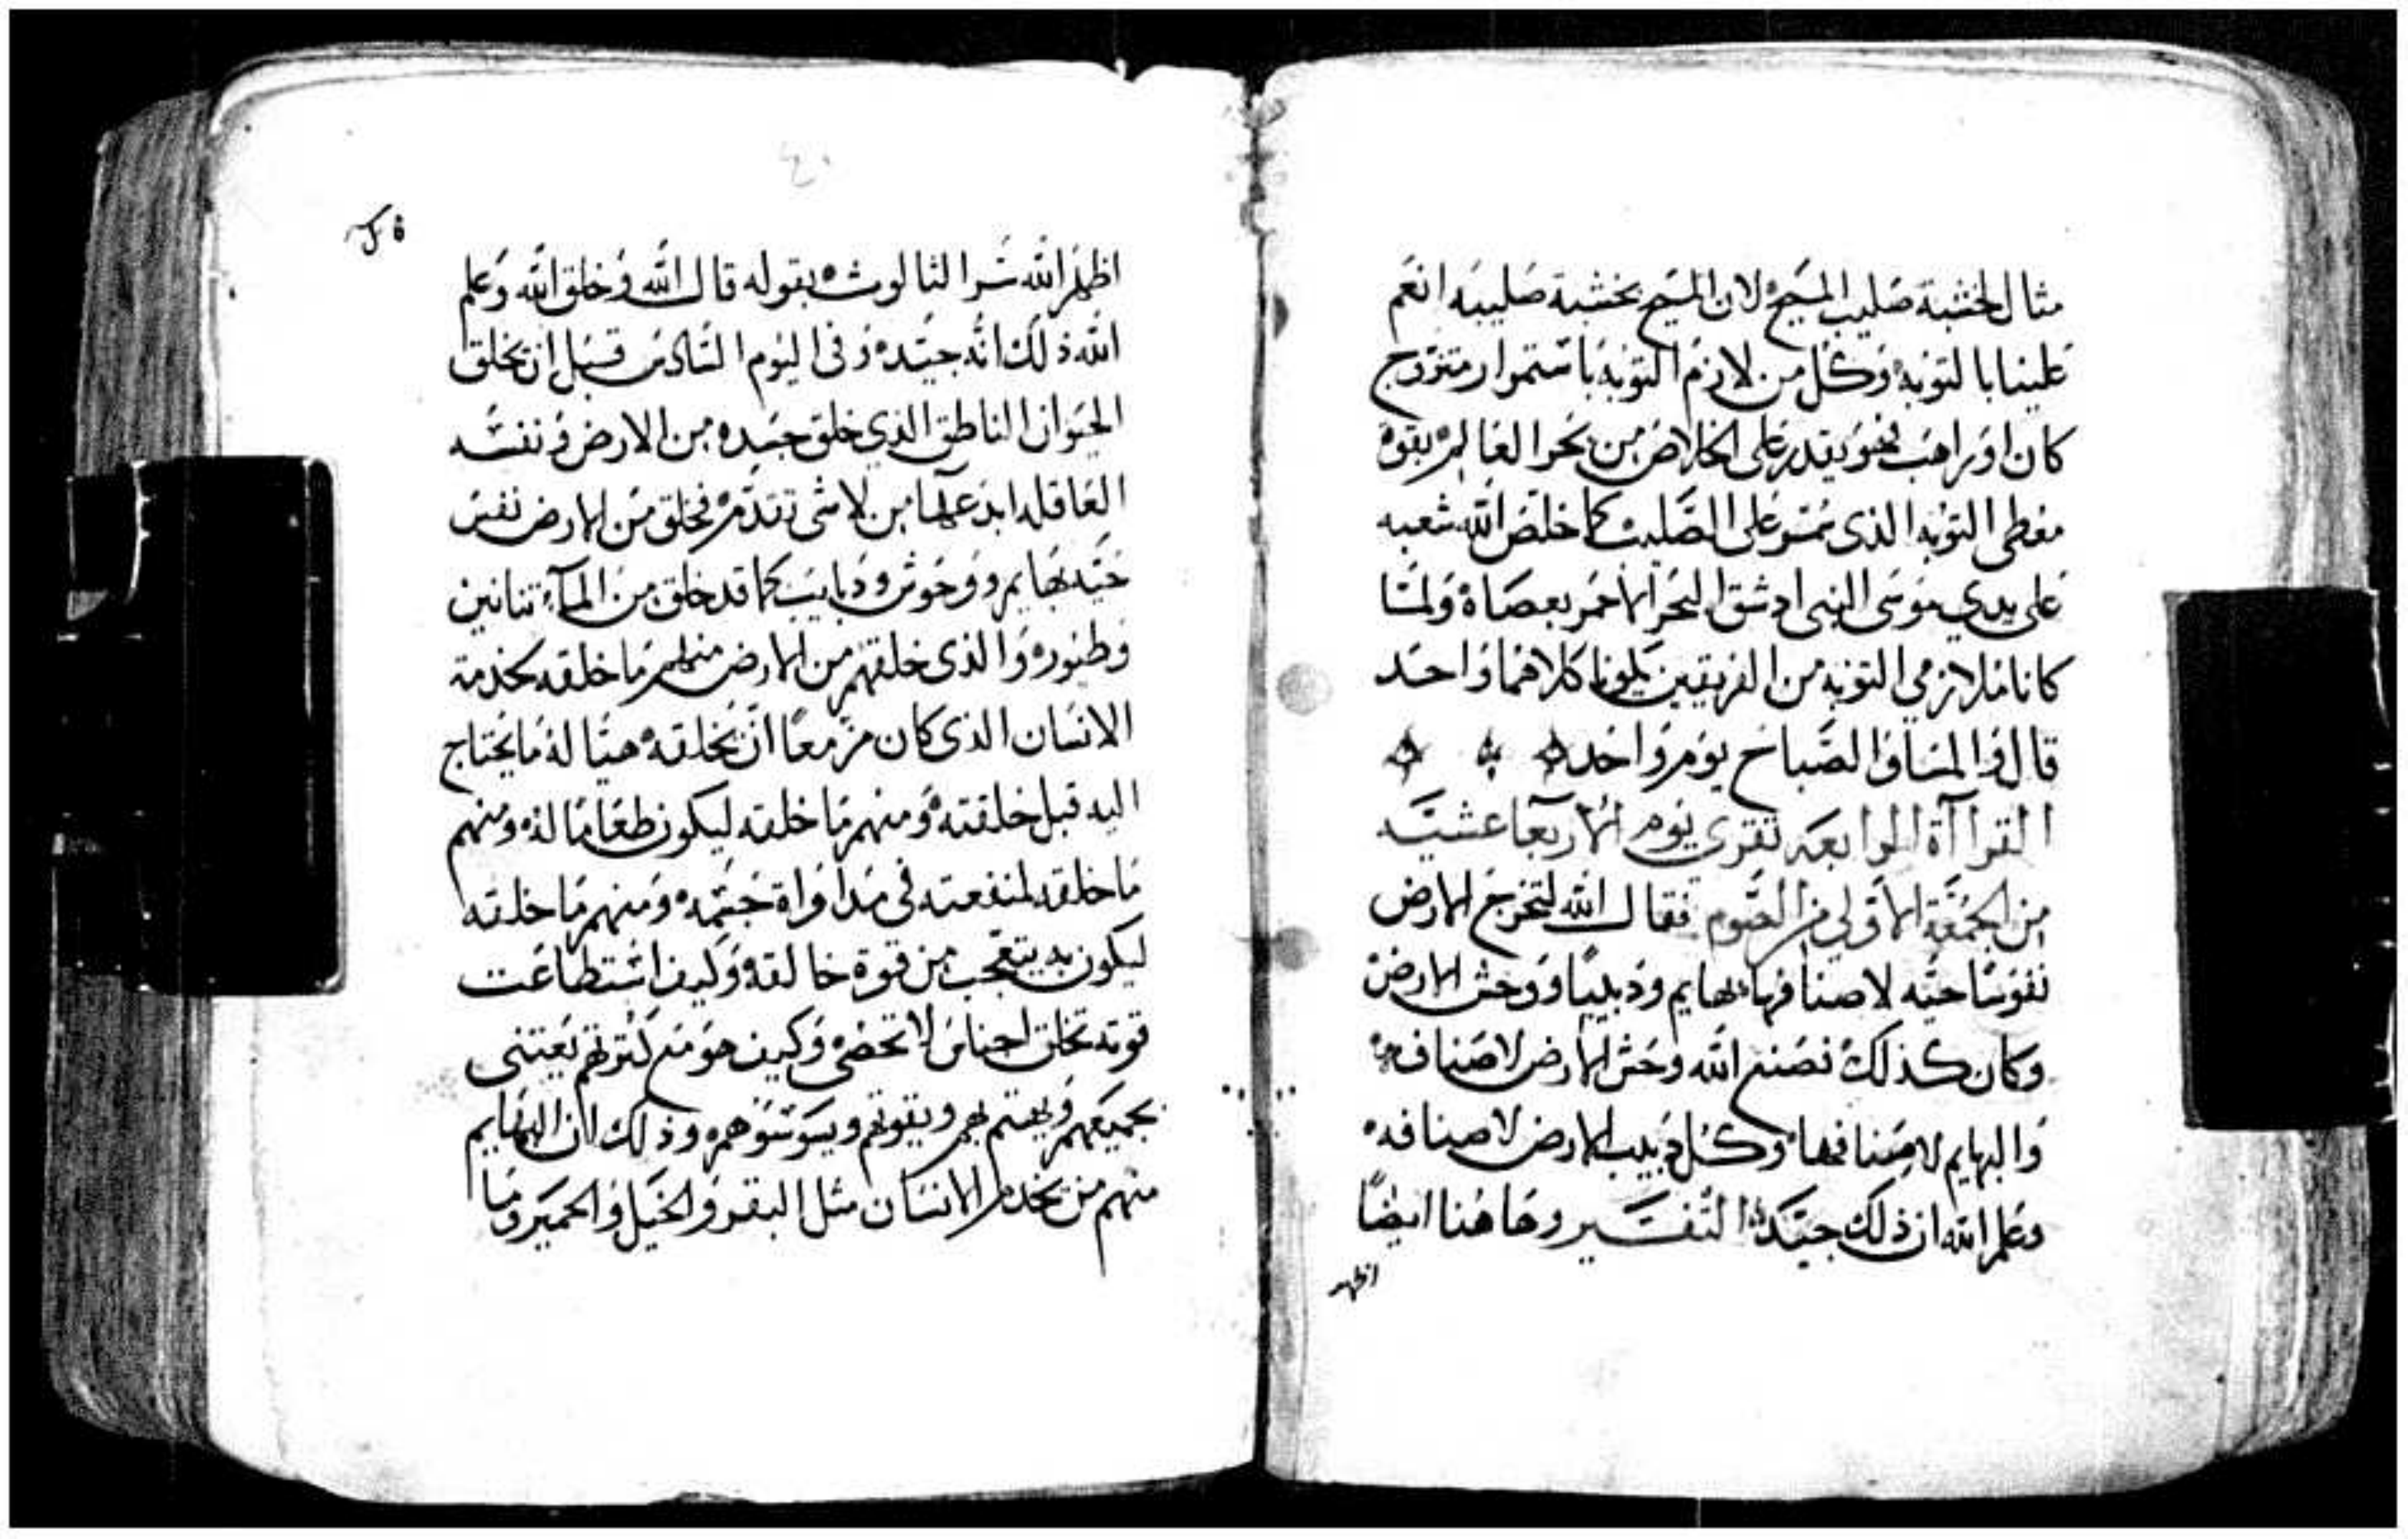 مثال لخشبة صليب المسيح لان المسيح بخشبة صليبه انعم
علينا با لتوبه وكل من لازم التوبه باستمرار متزوج
كان او راهب فهو يقدر على الخلاص من بحر العالم بقوة
معطى التوبه الذى سمر على الصليب كما خلص الله شعبه
على يدي موسى النبى اد شق البحر الاحمر بعصاه ولما
كانا ملازمي التوبه من الفريقين يكونا كلاهما واحد
قال والمسا والصباح يوم واحد
القراآة الرابعه تقري يوم الاربعا عشيه
من الجمعة الاولي من الصوم فقال الله لتخرج الارض
نفوسا حيه لاصنافها بهايم ودبيبا ووحش الارض
وكان كذلك فصنع الله وحش الارض لاصنافه
والبهايم لاصنافها وكل دبيب الارض لاصنافه
وعلم الله ان ذلك جيد التفسير وهاهنا ايضا
اظهر
اظهر الله سر الثالوث بقوله قال الله وخلق الله وعلم
الله ذلك انه جيد وفى اليوم السادس قبل ان يخلق
الحيوان الناطق الذي خلق جسده من الارض ونفسه
العاقله ابدعها من لاشى تقدم فخلق من الارض نفس
حيه بهايم ووحوش ودبابيب كما قد خلق من المآء تنانين
وطيور والذى خلقهم من الارض منهم ما خلقه لخدمة
الانسان الذى كان مزمعا ان يخلقه هيا له ما يحتاج
اليه قبل خلقته ومنهم ما خلقه ليكون طعاما له ومنهم
ما خلقه لمنفعته فى مداواة جسمه ومنهم ما خلقه
ليكون به يتعجب من قوة خالقه وكيف استطاعت
قوته تخلق اجناس لا تحصى وكيف هو مع كثرتهم يعتنى
بجميعهم ويهتم بهم ويقوتهم ويسوسوهم وذلك ان البهايم
منهم من يخدم الانسان مثل البقر والخيل والحمير وما